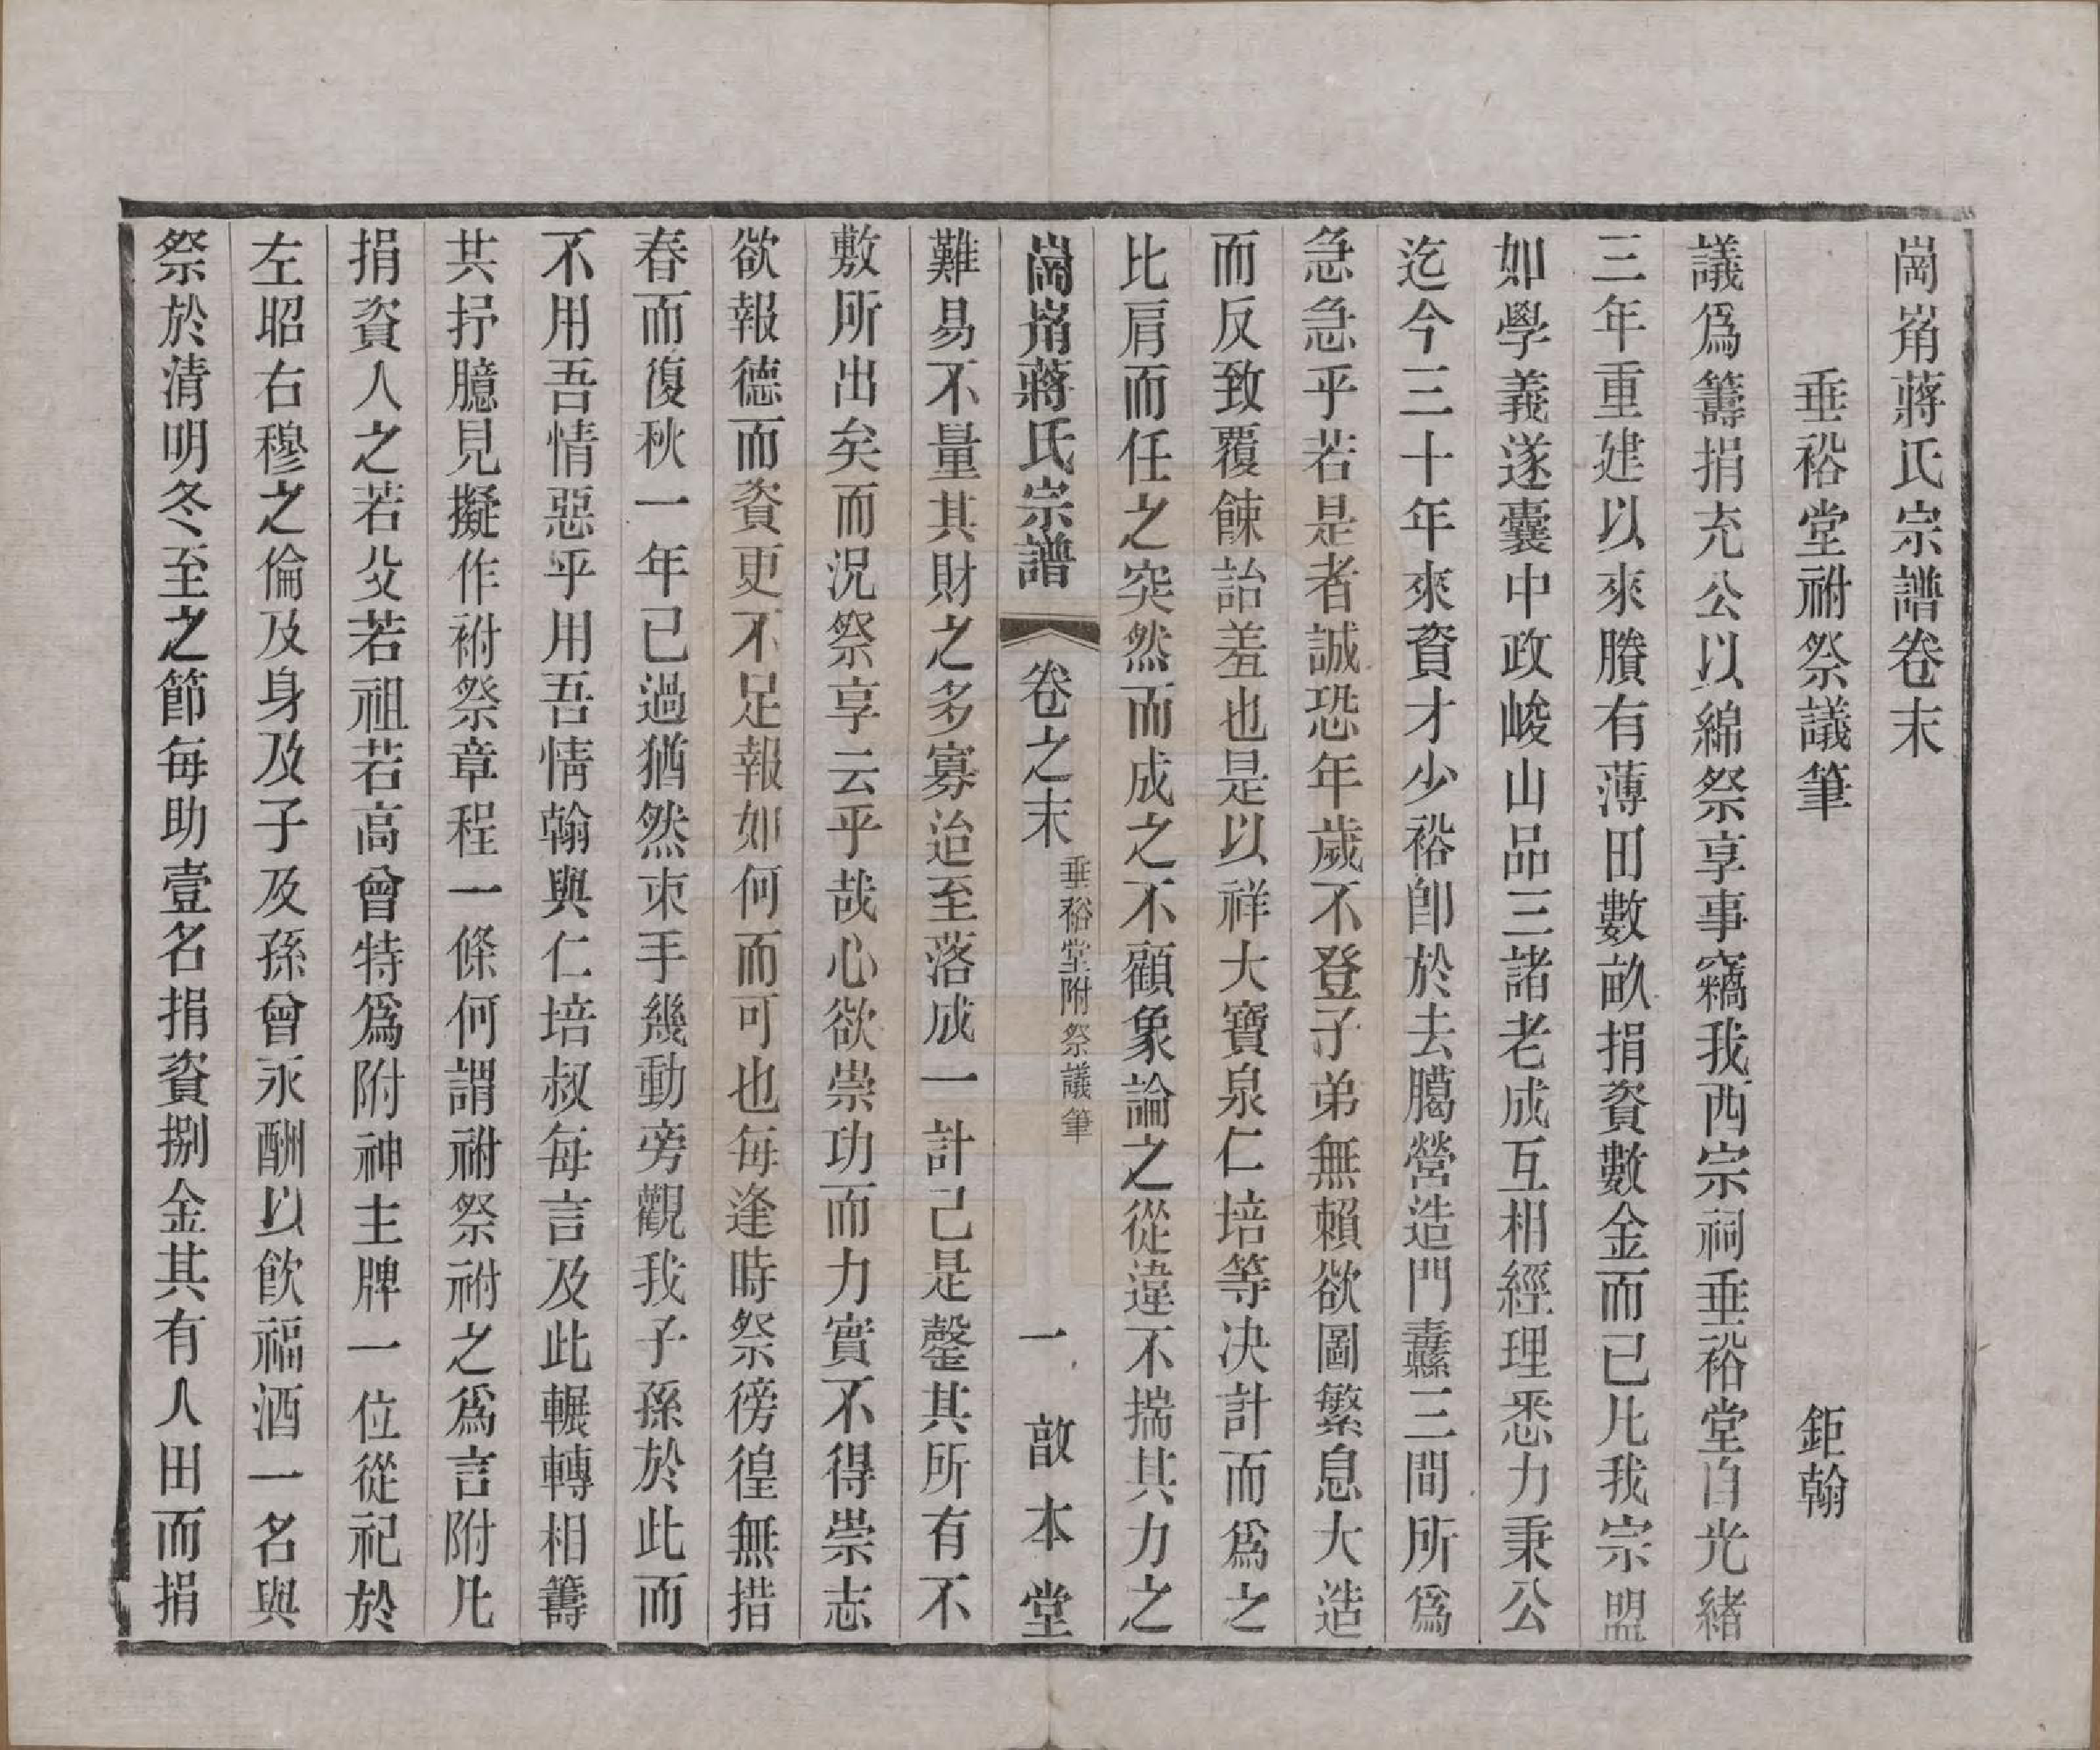 崗崗蔣氏宗譜卷末
垂裕堂祔祭議筆　鉅翰
議爲籌捐充公以綿祭享事竊我西宗祠垂裕堂自光緒
三年重建以來賸有薄田數畝捐資數金而已凡我宗盟
如學義遂囊中政峻山品三諸老成互相經理悉力秉公
迄今三十年來資才少裕卽於去臈營造門纛三間所爲
急急乎若是者誠恐年歲不登子弟無賴欲圖繁息大造
而反致覆餗詒羞也是以祥大寶泉仁培等决計而爲之
比肩而任之突然而成之不顧象論之從違不揣其力之
蔣氏宗譜　卷之末　垂裕堂附祭議筆　一　敨本堂
難易不量其財之多寡迨至落成一計己是罄其所有不
敷所出矣而況祭享云乎哉心欲崇功而力實不得崇志
欲報德而資更不足報如何而可也每逢時祭徬徨無措
春而復秋一年已過猶然束手幾動旁觀我子孫於此而
不用吾情惡乎用吾情翰與仁培叔每言及此輾轉相籌
共抒臆見擬作祔祭章程一條何謂祔祭祔之爲言附凡
捐資人之若父若祖若高曾特爲附神主牌一位從祀於
左昭右穆之倫及身及子及孫曾永酬以飮福酒一名與
祭於清明冬至之節每助壹名捐資捌金其有人田而捐